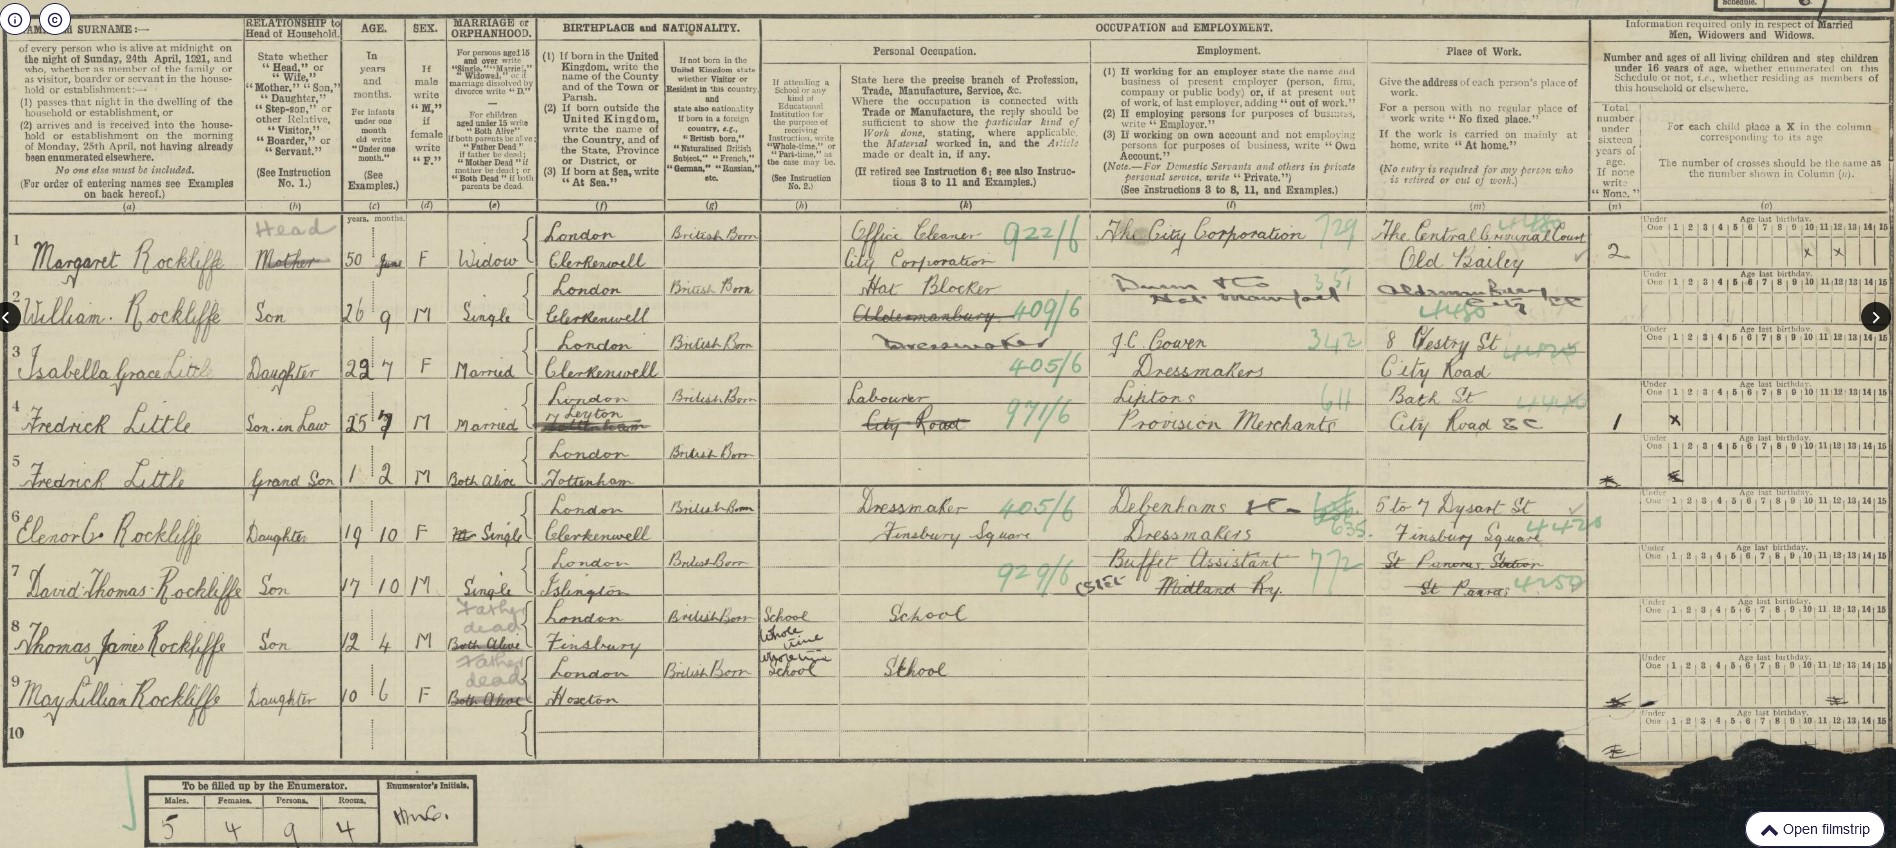 Schedule.
NAME and SURNAME:—
of every person who is alive at midnight on
the night of Sunday, 24th April, 1921, and
who, whether as member of the family or
as visitor, boarder or servant in the house-
hold or establishment:—
(1) passes that night in the dwelling of the
household or establishment, or
(2) arrives and is received into the house-
hold or establishment on the morning
of Monday, 25th April, not having already
been enumerated elsewhere.
No one else must be included.
(For order of entering names see Examples
on back hereof.)
(a)
RELATIONSHIP to
Head of Household.
State whether
"Head," or
"Wife,"
"Mother," "Son,"
"Daughter,"
"Step-son," or
other Relative,
"Visitor,"
"Boarder," or
"Servant."
(See Instruction
No. 1.)
(b)
AGE.
In
years
and
months.
For infants
under one
month
old write
"Under one
month."
(See
Examples.)
(c)
SEX.
If
male
write
"M,"
if
female
write
"F."
(d)
MARRIAGE or
ORPHANHOOD.
For persons aged 15
and over write
"Single," "Married,"
"Widowed," or if
marriage dissolved by
divorce write "D."
For children
aged under 15 write
"Both Alive"
if both parents be alive;
"Father Dead"
if father be dead;
"Mother Dead" if
mother be dead; or
"Both Dead" if both
parents be dead.
(e)
BIRTHPLACE and NATIONALITY.
(1) If born in the United
Kingdom, write the
name of the County
and of the Town or
Parish.
(2) If born outside the
United Kingdom,
write the name of
the Country, and of
the State, Province
or District, or
(3) If born at Sea, write
"At Sea."
(f)
If not born in the
United Kingdom state
whether Visitor or
Resident in this country,
and
state also nationality
If born in a foreign
country, e.g.,
"British born,"
"Naturalised British
Subject," "French,"
"German," "Russian,"
etc.
(g)
OCCUPATION and EMPLOYMENT.
If attending a
School or any
kind of
Educational
Institution for
the purpose of
receiving
Instruction, write
"Whole-time," or
"Part-time," as
the case may be.
(See Instruction
No. 2.)
(h)
Personal Occupation.
State here the precise branch of Profession,
Trade, Manufacture, Service, &c.
Where the occupation is connected with
Trade or Manufacture, the reply should be
sufficient to show the particular kind of
Work done, stating, where applicable,
the Material worked in, and the Article
made or dealt in, if any.
(If retired see Instruction 6; see also Instruc-
tions 3 to 11 and Examples.)
(k)
Employment.
(1) If working for an employer state the name and
business of present employer (person, firm,
company or public body) or, if at present out
of work, of last employer, adding "out of work."
(2) If employing persons for purposes of business,
write "Employer."
(3) If working on own account and not employing
persons for purposes of business, write "Own
Account."
(Note.—For Domestic Servants and others in private
personal service, write "Private.")
(See Instructions 3 to 8, 11, and Examples.)
(l)
Place of Work.
Give the address of each person's place of
work.
For a person with no regular place of
work write "No fixed place."
If the work is carried on mainly at
home, write "At home."
(No entry is required for any person who
is retired or out of work.)
(m)
Information required only in respect of Married
Men, Widowers and Widows.
Number and ages of all living children and step children
under 16 years of age, whether enumerated on this
Schedule or not, i.e., whether residing as members of
this household or elsewhere.
Total
number
under
sixteen
years of
age.
If none
write
"None."
(n)
For each child place a X in the column
corresponding to its age
The number of crosses should be the same as
the number shown in Column (n).
(o)
years. months.
Under One Age last birthday. 1 2 3 4 5 6 7 8 9 10 11 12 13 14 15
1 Margaret Rockliffe Head Mother 50 June F Widow London Clerkenwell British Born Office Cleaner City Corporation 922/6 The City Corporation 729 The Central Criminal Court Old Bailey 2 x x
2 William. Rockliffe Son 26 9 M Single London Clerkenwell British Born Hat Blocker Aldermanbury 409/6 351 4480
3 Isabella Grace Little Daughter 22 7 F Married London Clerkenwell British Born Dressmaker 405/6 J.C. Cowen Dressmakers 342 8 Vestry St City Road
4 Fredrick Little Son. in Law 25 7 M Married London Leyton Tottenham British Born Labourer City Road 971/6 Liptons Provision Merchants 611 Bath St City Road E C 1 x
5 Fredrick Little Grand Son 1 2 M Both Alive London Tottenham British Born
6 Elenor C. Rockliffe Daughter 19 10 F Single London Clerkenwell British Born Dressmaker Finsbury Square 405/6 Debenhams Dressmakers 635. 5 to 7 Dysart St Finsbury Square 4420
7 David Thomas Rockliffe Son 17 10 M Single London Islington British Born 929/6 Buffet Assistant Midland Ry. 772 St Pancras Station St Pancras
8 Thomas James Rockliffe Son 12 4 M Father dead Both Alive London Finsbury British Born School Whole time School
9 May Lillian Rockliffe Daughter 10 6 F Father dead Both Alive London Hoxton British Born Whole time School School
10
To be filled up by the Enumerator.
Males. Females. Persons. Rooms.
5 4 9 4
Enumerator's Initials.
Open filmstrip